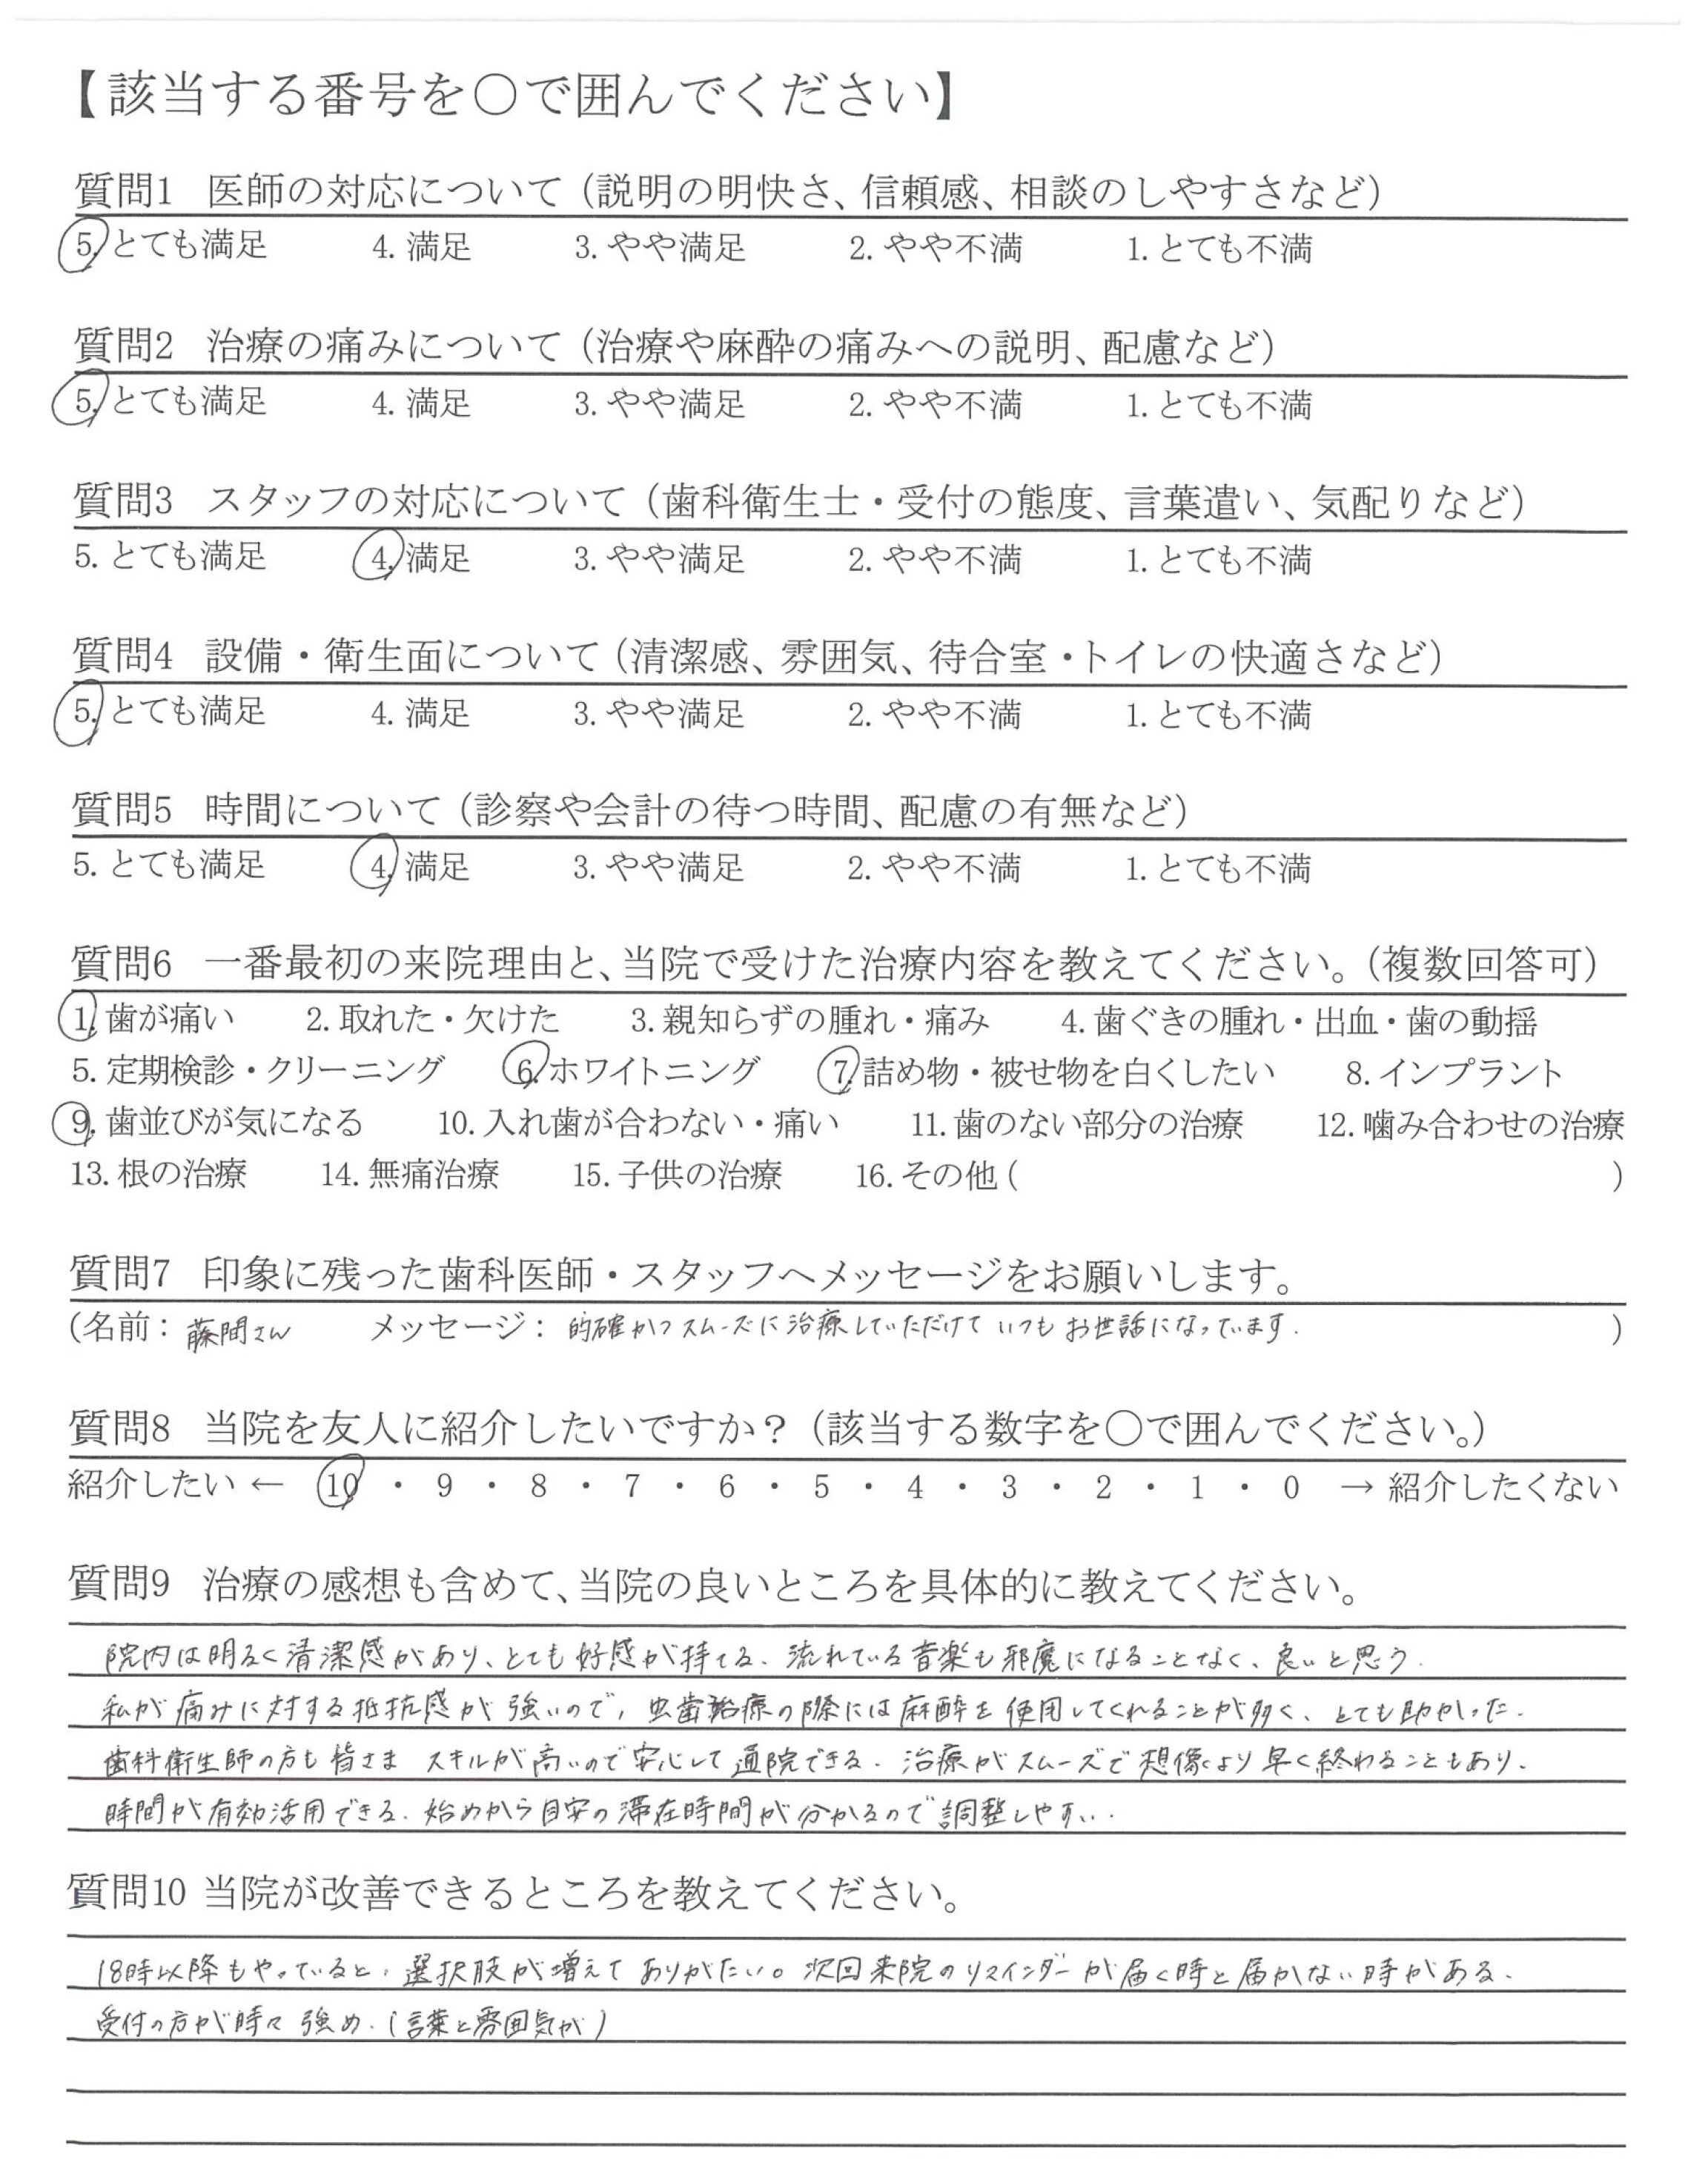 【該当する番号を○で囲んでください】
質問1 医師の対応について（説明の明快さ、信頼感、相談のしやすさなど）
5. とても満足 4. 満足 3. やや満足 2. やや不満 1. とても不満
質問2 治療の痛みについて（治療や麻酔の痛みへの説明、配慮など）
5. とても満足 4. 満足 3. やや満足 2. やや不満 1. とても不満
質問3 スタッフの対応について（歯科衛生士・受付の態度、言葉遣い、気配りなど）
5. とても満足 4. 満足 3. やや満足 2. やや不満 1. とても不満
質問4 設備・衛生面について（清潔感、雰囲気、待合室・トイレの快適さなど）
5. とても満足 4. 満足 3. やや満足 2. やや不満 1. とても不満
質問5 時間について（診察や会計の待つ時間、配慮の有無など）
5. とても満足 4. 満足 3. やや満足 2. やや不満 1. とても不満
質問6 一番最初の来院理由と、当院で受けた治療内容を教えてください。（複数回答可）
1. 歯が痛い 2. 取れた・欠けた 3. 親知らずの腫れ・痛み 4. 歯ぐきの腫れ・出血・歯の動揺
5. 定期検診・クリーニング 6. ホワイトニング 7. 詰め物・被せ物を白くしたい 8. インプラント
9. 歯並びが気になる 10. 入れ歯が合わない・痛い 11. 歯のない部分の治療 12. 噛み合わせの治療
13. 根の治療 14. 無痛治療 15. 子供の治療 16. その他（ ）
質問7 印象に残った歯科医師・スタッフへメッセージをお願いします。
（名前：藤間さん メッセージ：的確かつスムーズに治療していただけていつもお世話になっています. ）
質問8 当院を友人に紹介したいですか？（該当する数字を○で囲んでください。）
紹介したい ← 10 ・ 9 ・ 8 ・ 7 ・ 6 ・ 5 ・ 4 ・ 3 ・ 2 ・ 1 ・ 0 → 紹介したくない
質問9 治療の感想も含めて、当院の良いところを具体的に教えてください。
院内は明るく清潔感があり、とても好感が持てる. 流れている音楽も邪魔になることなく、良いと思う.
私が痛みに対する抵抗感が強いので、虫歯治療の際には麻酔を使用してくれることが多く、とても助かった.
歯科衛生師の方も皆さまスキルが高いので安心して通院できる. 治療がスムーズで想像より早く終わることもあり、
時間が有効活用できる. 始めから目安の滞在時間が分かるので調整しやすい.
質問10 当院が改善できるところを教えてください。
18時以降もやっていると、選択肢が増えてありがたい。次回来院のリマインダーが届く時と届かない時がある.
受付の方が時々強め.（言葉と雰囲気が）